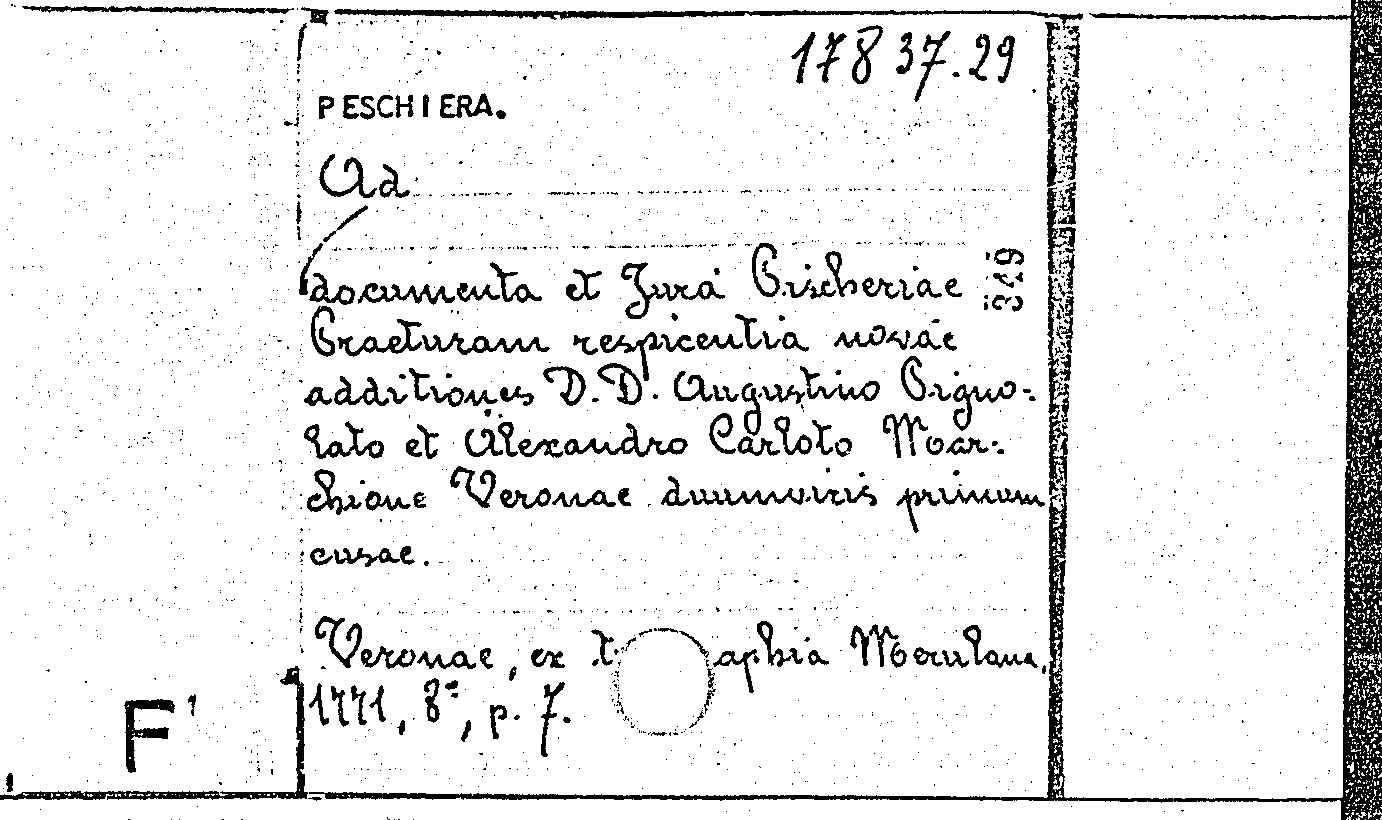 17837.29
PESCHIERA.
Ad
documenta et Jura Pischeriae
Praeturam respicentia novae
additiones D.D. Augustino Pigno-
lato et Alexandro Carloto Mar-
chione Veronae duumviris primum
cusae.
349
Veronae, ex t aphia Merulana,
1771, 8º, p. 7.
F